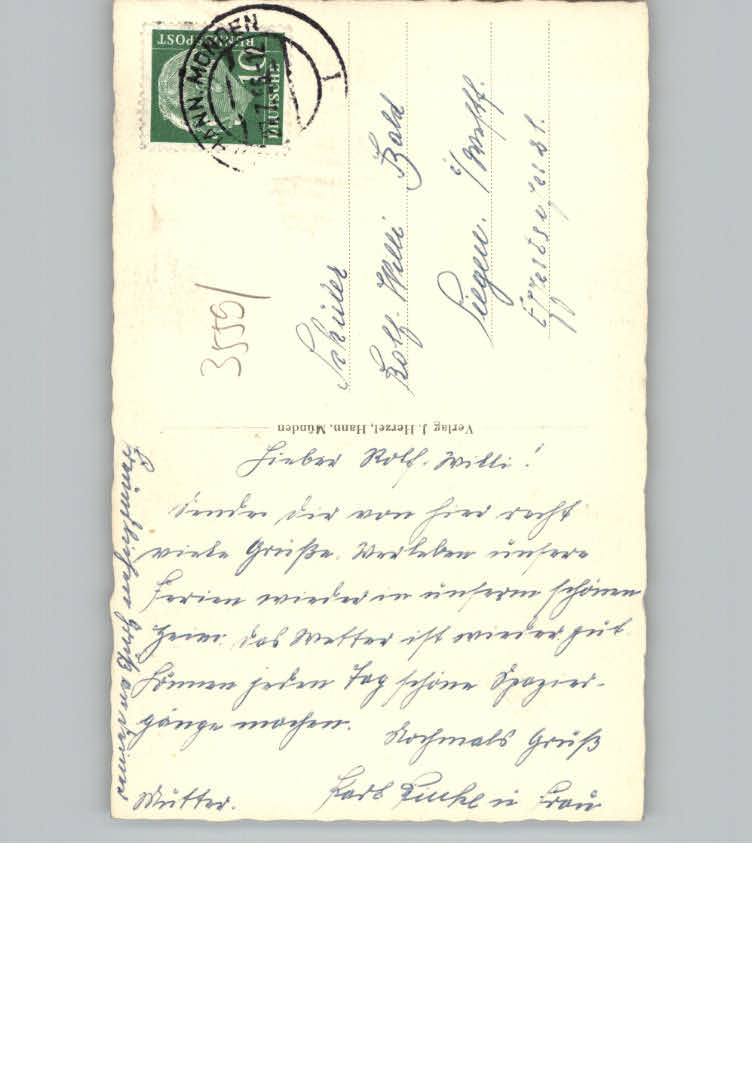 HANN. MÜNDEN
1
DEUTSCHE
BUNDESPOST
10
3559/
Schüler
Rolf-Willi Bald
Siegen. i/Westf.
Verlag J. Herzel, Hann. Münden
Lieber Rolf-Willi!
Sende dir von hier recht
viele Grüße. Verleben unsere
Ferien wieder in unserm schönen
Heim. das Wetter ist wieder gut.
können jeden Tag schöne Spazier-
gänge machen.
Nochmals Gruß
Karl u Frau
Gruß an deine
Mutter.